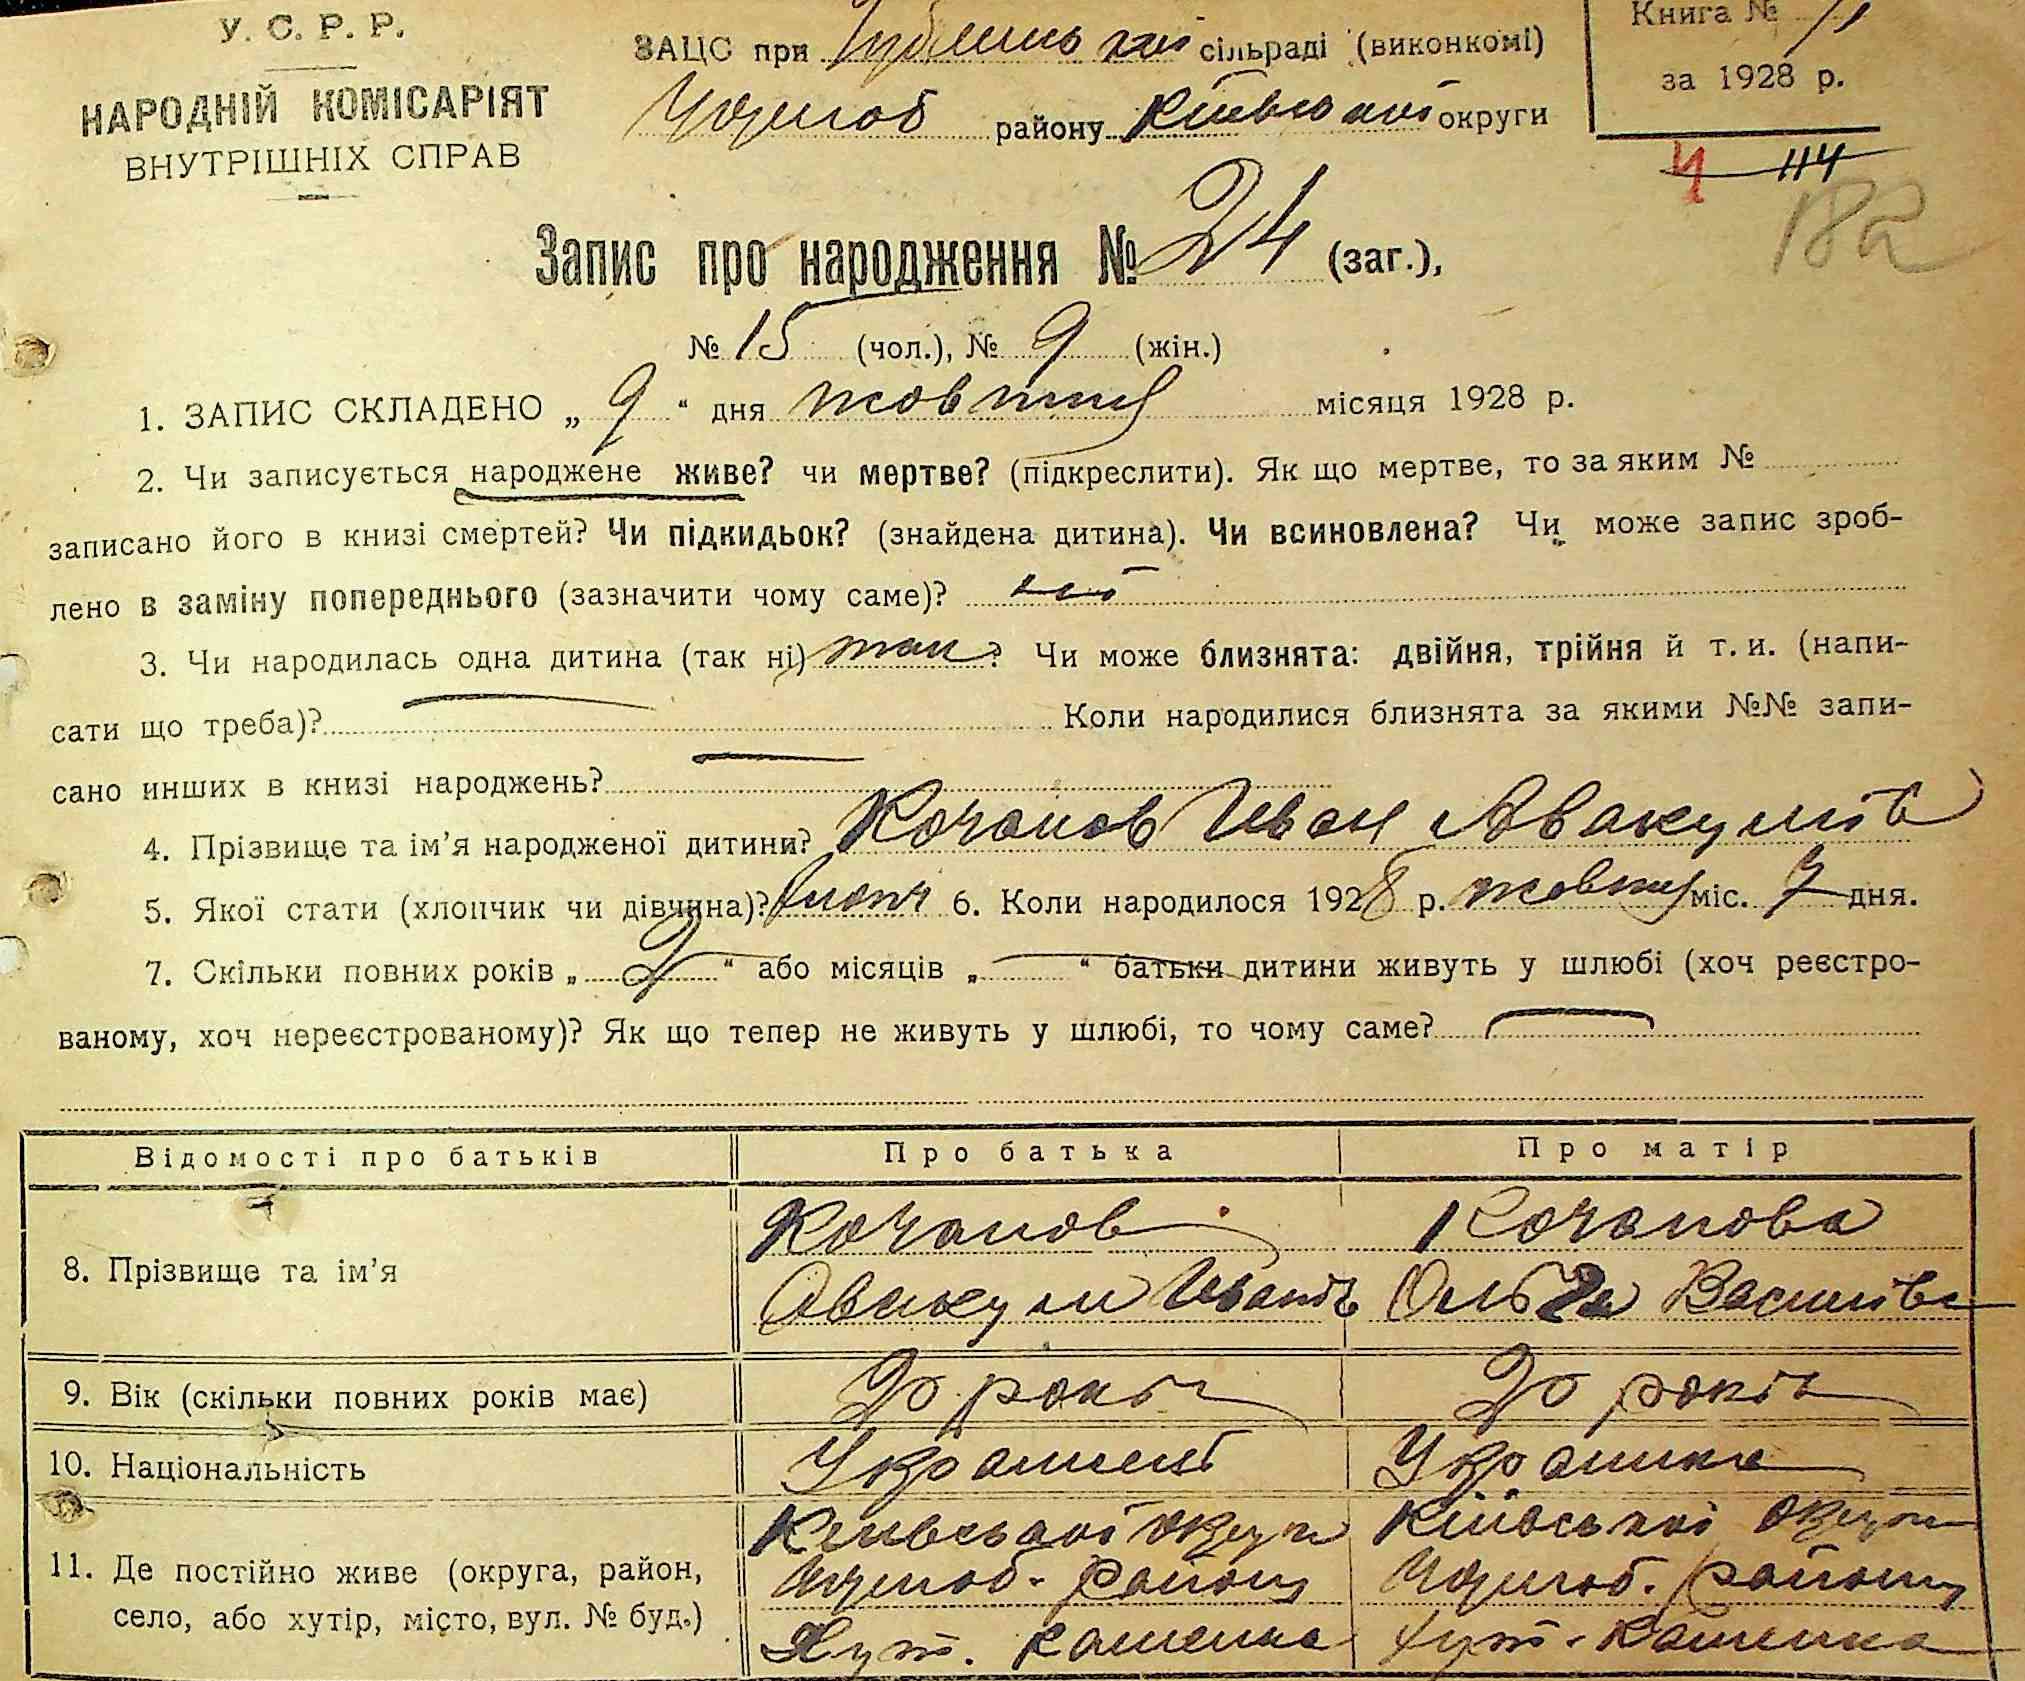 У. С. Р. Р.
НАРОДНІЙ КОМІСАРІЯТ
ВНУТРІШНІХ СПРАВ
ЗАЦС при сільраді (виконкомі)
району Київської округи
Книга №
за 1928 р.
114
182
Запис про народження № 24 (заг.),
№ 15 (чол.), № 9 (жін.)
1. ЗАПИС СКЛАДЕНО „ 9 “ дня жовтня місяця 1928 р.
2. Чи записується народжене живе? чи мертве? (підкреслити). Як що мертве, то за яким №
записано його в книзі смертей? Чи підкидьок? (знайдена дитина). Чи всиновлена? Чи може запис зроб-
лено в заміну попереднього (зазначити чому саме)? ні
3. Чи народилась одна дитина (так ні) так? Чи може близнята: двійня, трійня й т. и. (напи-
сати що треба)? Коли народилися близнята за якими №№ запи-
сано инших в книзі народжень?
4. Прізвище та ім’я народженої дитини? Кочанов Иван Авакумів
5. Якої стати (хлопчик чи дівчина)? хлопч 6. Коли народилося 1928 р. жовтня міс. 7 дня.
7. Скільки повних років „ 2 “ або місяців „ “ батьки дитини живуть у шлюбі (хоч реєстро-
ваному, хоч нереєстрованому)? Як що тепер не живуть у шлюбі, то чому саме?
Відомості про батьків Про батька Про матір
8. Прізвище та ім’я Кочанов Авакум Иванів Кочанова Ольга Василівна
9. Вік (скільки повних років має) 20 років 20 років
10. Національність Украинец Украинка
11. Де постійно живе (округа, район,
село, або хутір, місто, вул. № буд.)
Київської округи Київської округи
району району
Хут. Хут.